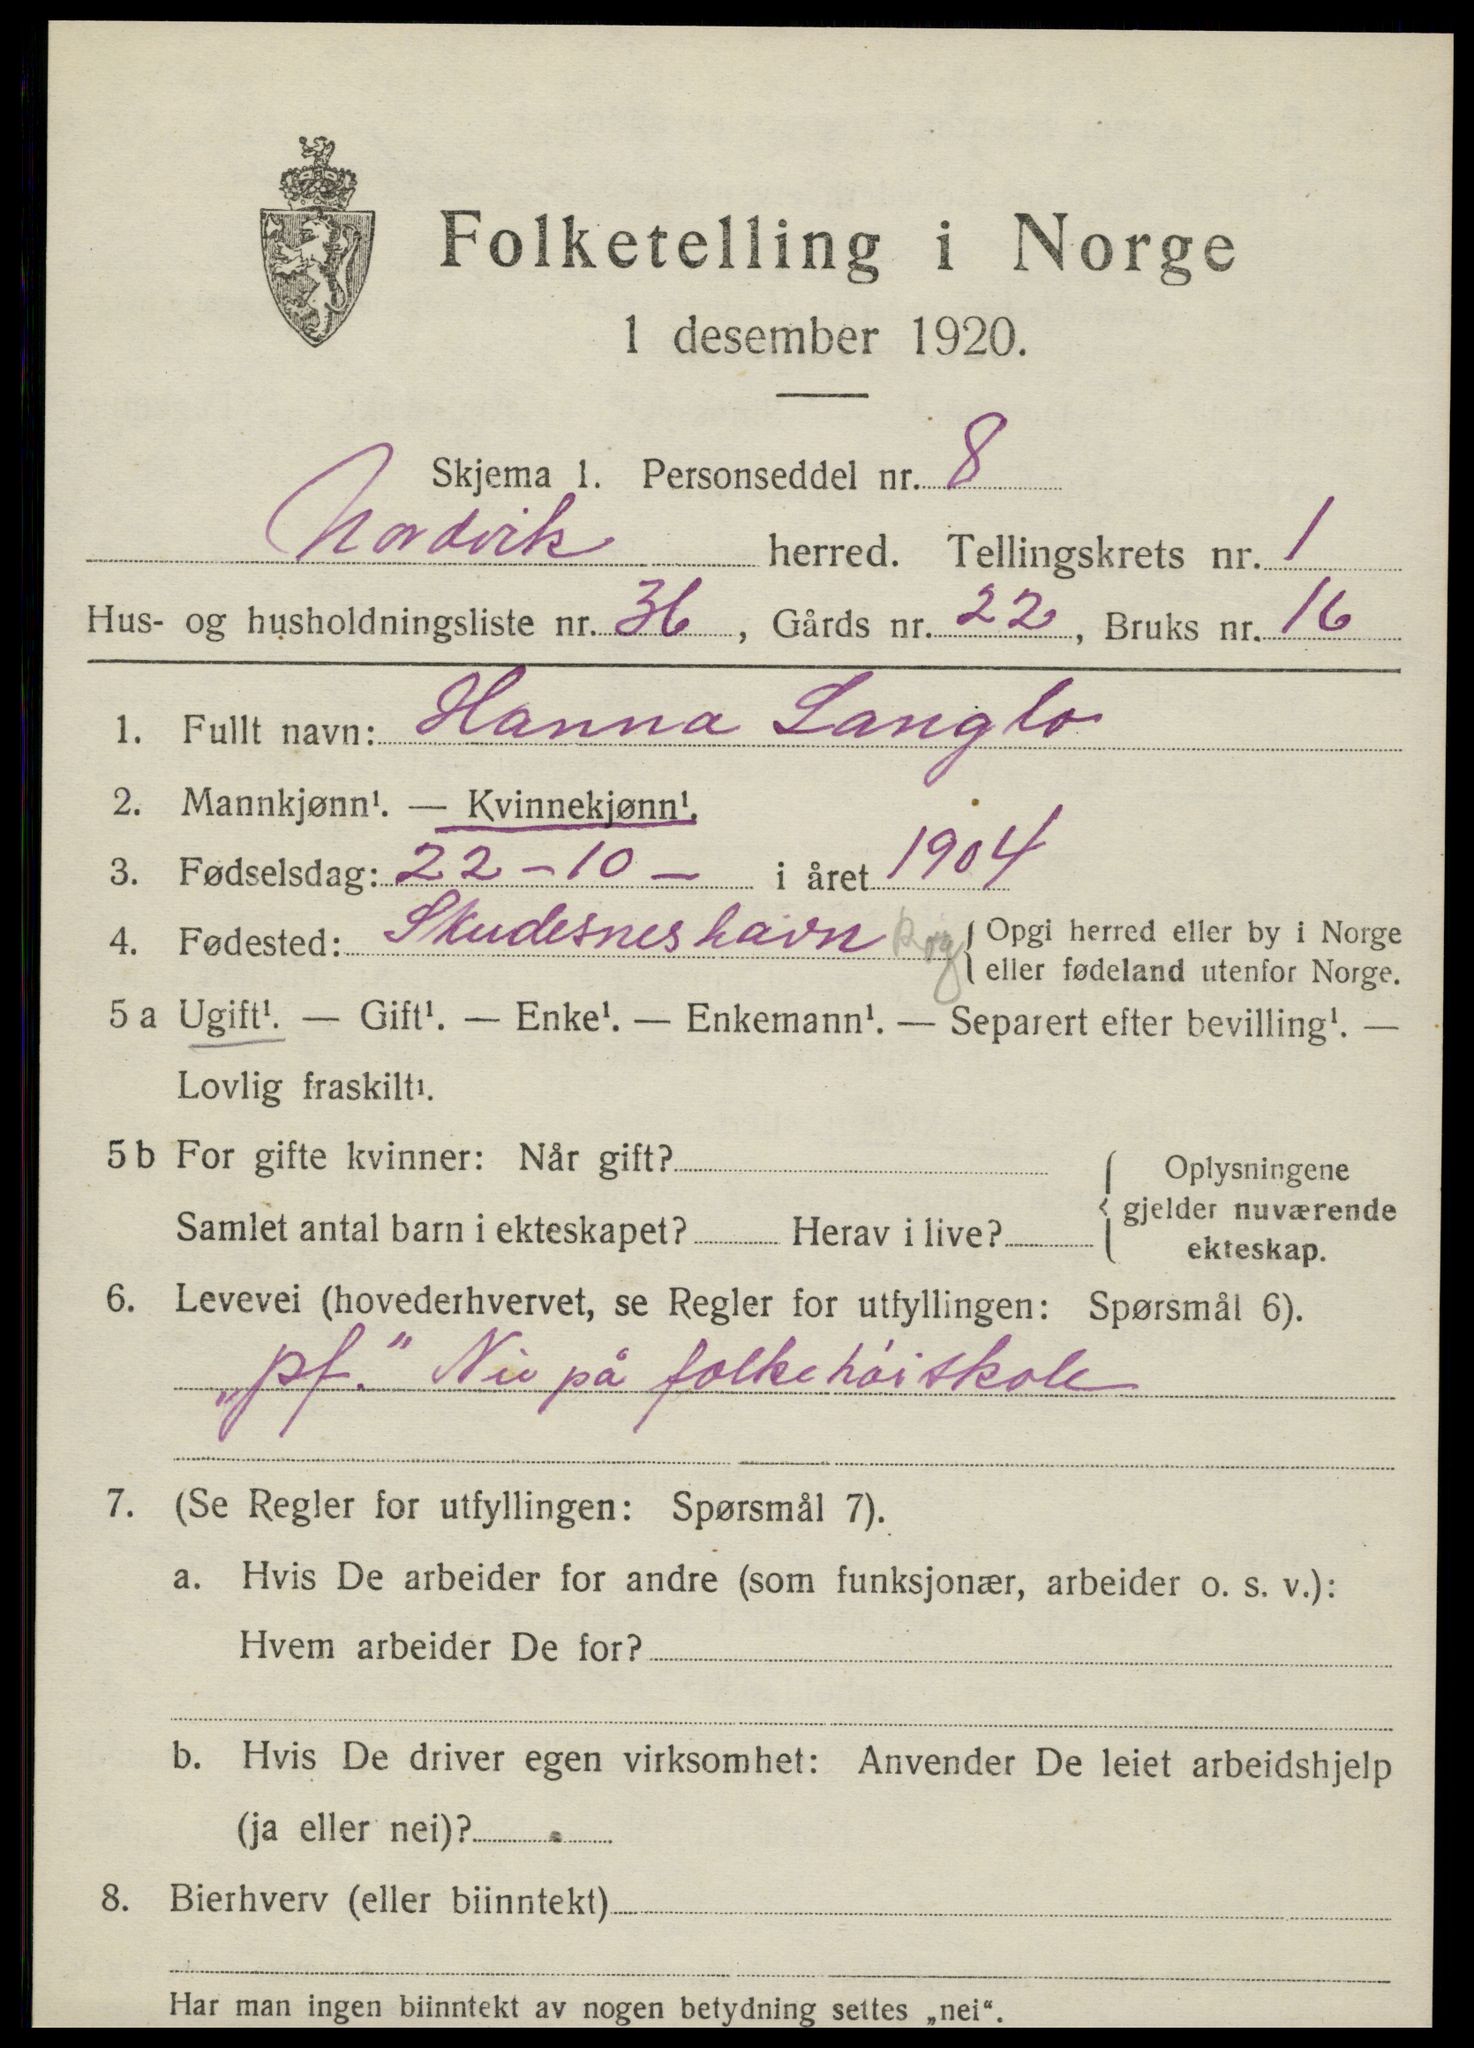 Folketelling i Norge
1 desember 1920.
Skjema 1. Personseddel nr. 8
Nordvik herred. Tellingskrets nr. 1
Hus- og husholdningsliste nr. 36, Gårds nr. 22, Bruks nr. 16
1. Fullt navn: Hanna Langlo
2. Mannkjønn¹. — Kvinnekjønn¹.
3. Fødselsdag: 22-10- i året 1904
4. Fødested: Skudesneshavn Rog { Opgi herred eller by i Norge
eller fødeland utenfor Norge.
5 a Ugift¹. — Gift¹. — Enke¹. — Enkemann¹. — Separert efter bevilling¹. —
Lovlig fraskilt¹.
5 b For gifte kvinner: Når gift?
Samlet antal barn i ekteskapet? Herav i live?
{ Oplysningene
gjelder nuværende
ekteskap.
6. Levevei (hovederhvervet, se Regler for utfyllingen: Spørsmål 6).
„pf." på folkehöiskole
7. (Se Regler for utfyllingen: Spørsmål 7).
a. Hvis De arbeider for andre (som funksjonær, arbeider o. s. v.):
Hvem arbeider De for?
b. Hvis De driver egen virksomhet: Anvender De leiet arbeidshjelp
(ja eller nei)?
8. Bierhverv (eller biinntekt)
Har man ingen biinntekt av nogen betydning settes „nei“.